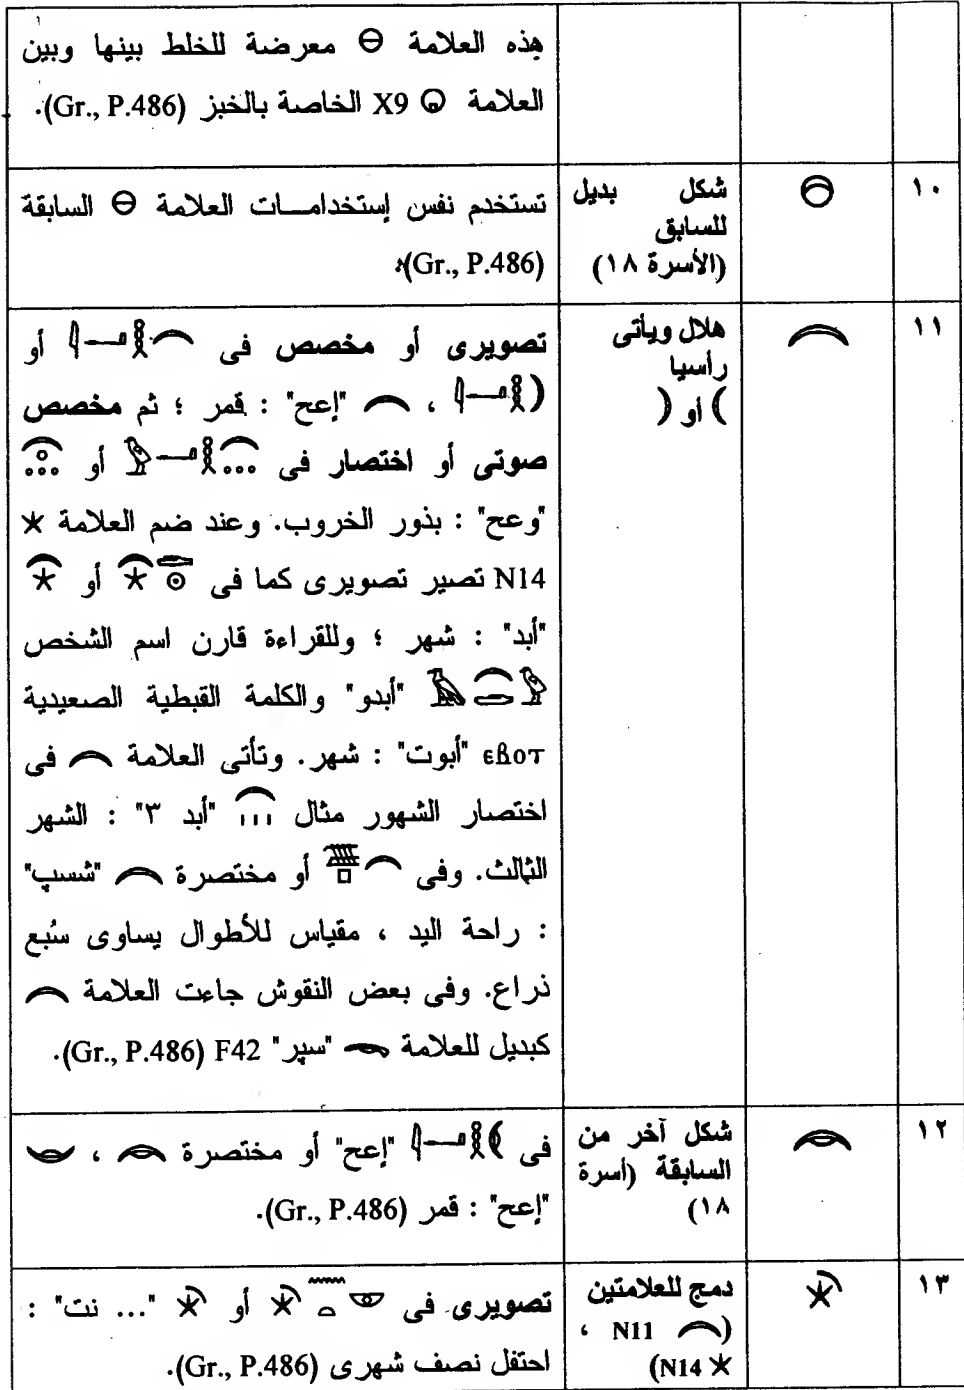 هذه العلامة 𓐎 معرضة للخلط بينها وبين
العلامة 𓏖 X9 الخاصة بالخبز (Gr., P.486).
١٠
شكل بديل
للسابق
(الأسرة ١٨)
تستخدم نفس إستخدامات العلامة السابقة
(Gr., P.486).
١١
هلال ويأتى
رأسيا
) أو (
تصويرى أو مخصص فى أو
، "إعح" : قمر ؛ ثم مخصص
صوتى أو اختصار فى أو
"وعح" : بذور الخروب. وعند ضم العلامة 𓇼
N14 تصير تصويرى كما فى أو
"أبد" : شهر ؛ وللقراءة قارن اسم الشخص
"أبدو" والكلمة القبطية الصعيدية
ⲉⲃⲟⲧ "أبوت" : شهر. وتأتى العلامة 𓇹 فى
اختصار الشهور مثال "أبد ٣" : الشهر
الثالث. وفى أو مختصرة 𓇹 "شسپ"
: راحة اليد ، مقياس للأطوال يساوى سُبع
ذراع. وفى بعض النقوش جاءت العلامة 𓇹
كبديل للعلامة 𓄋 "سپر" F42 (Gr., P.486).
١٢
شكل آخر من
السابقة (أسرة
١٨)
فى "إعح" أو مختصرة ،
"إعح" : قمر (Gr., P.486).
١٣
دمج للعلامتين
(𓇹 N11 ،
𓇼 N14)
تصويرى فى أو "... نت" :
احتفل نصف شهرى (Gr., P.486).